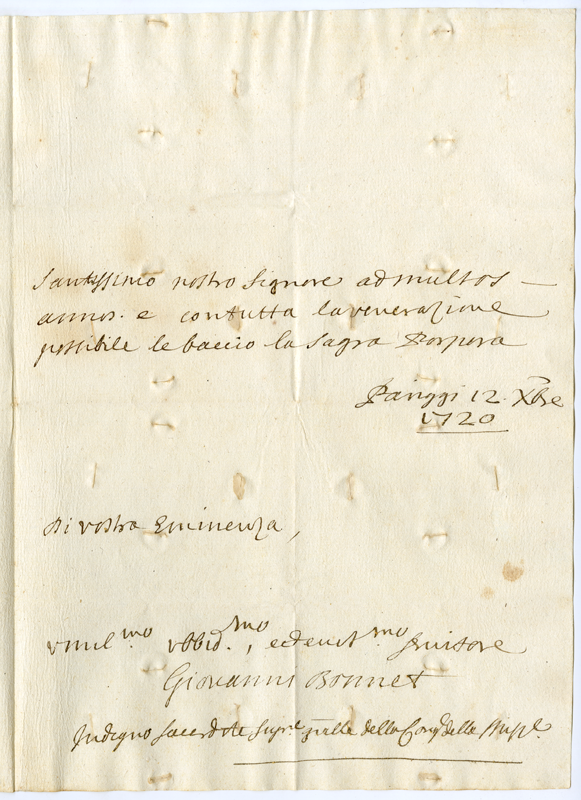 Santissimo nostro Signore ad multos —
annos. e contutta la venerazione
possibile le baccio la sagra Porpora
Pariggi 12. Xbre
1720
Di vostra Eminenza,
vmil.mo vbbid.mo, ed evot.mo servitore
Giovanni Bonnet
Indegno sacerdote Sup.e gnãlle della Cong. della Miss.e